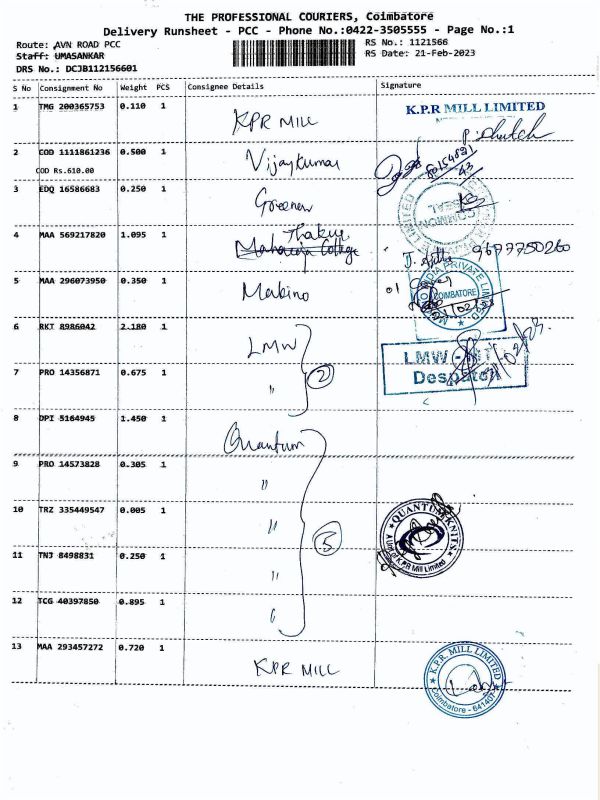 THE PROFESSIONAL COURIERS, Coimbatore
Delivery Runsheet - PCC - Phone No.:0422-3505555 - Page No.:1
Route: AVN ROAD PCC
RS No.: 1121566
Staff: UMASANKAR
RS Date: 21-Feb-2023
DRS No.: DCJB112156601
S No Consignment No Weight PCS Consignee Details Signature
1 TMG 200365753 0.110 1 KPR MILL K.P.R MILL LIMITED
2 COD 1111861236 0.500 1 Vijaykumar
COD Rs.610.00
3 EDQ 16586683 0.250 1
COMMON SEAL
4 MAA 569217820 1.095 1 Thakur 9677750260
Maharaja College
5 MAA 296073950 0.350 1
INDIA PRIVATE LIMITED
COIMBATORE
6 RKT 8986042 2.180 1 LMW
LMW
Despatch
7 PRO 14356871 0.675 1 " 2
8 DPI 5164945 1.450 1 Quantum
9 PRO 14573828 0.305 1 "
10 TRZ 335449547 0.005 1 " 5
QUANTUM KNITS
A Unit of K.P.R Mill Limited
11 TNJ 8498831 0.250 1 "
12 TCG 40397850 0.895 1 "
13 MAA 293457272 0.720 1 KPR MILL
K.P.R. MILL LIMITED
Coimbatore - 641407